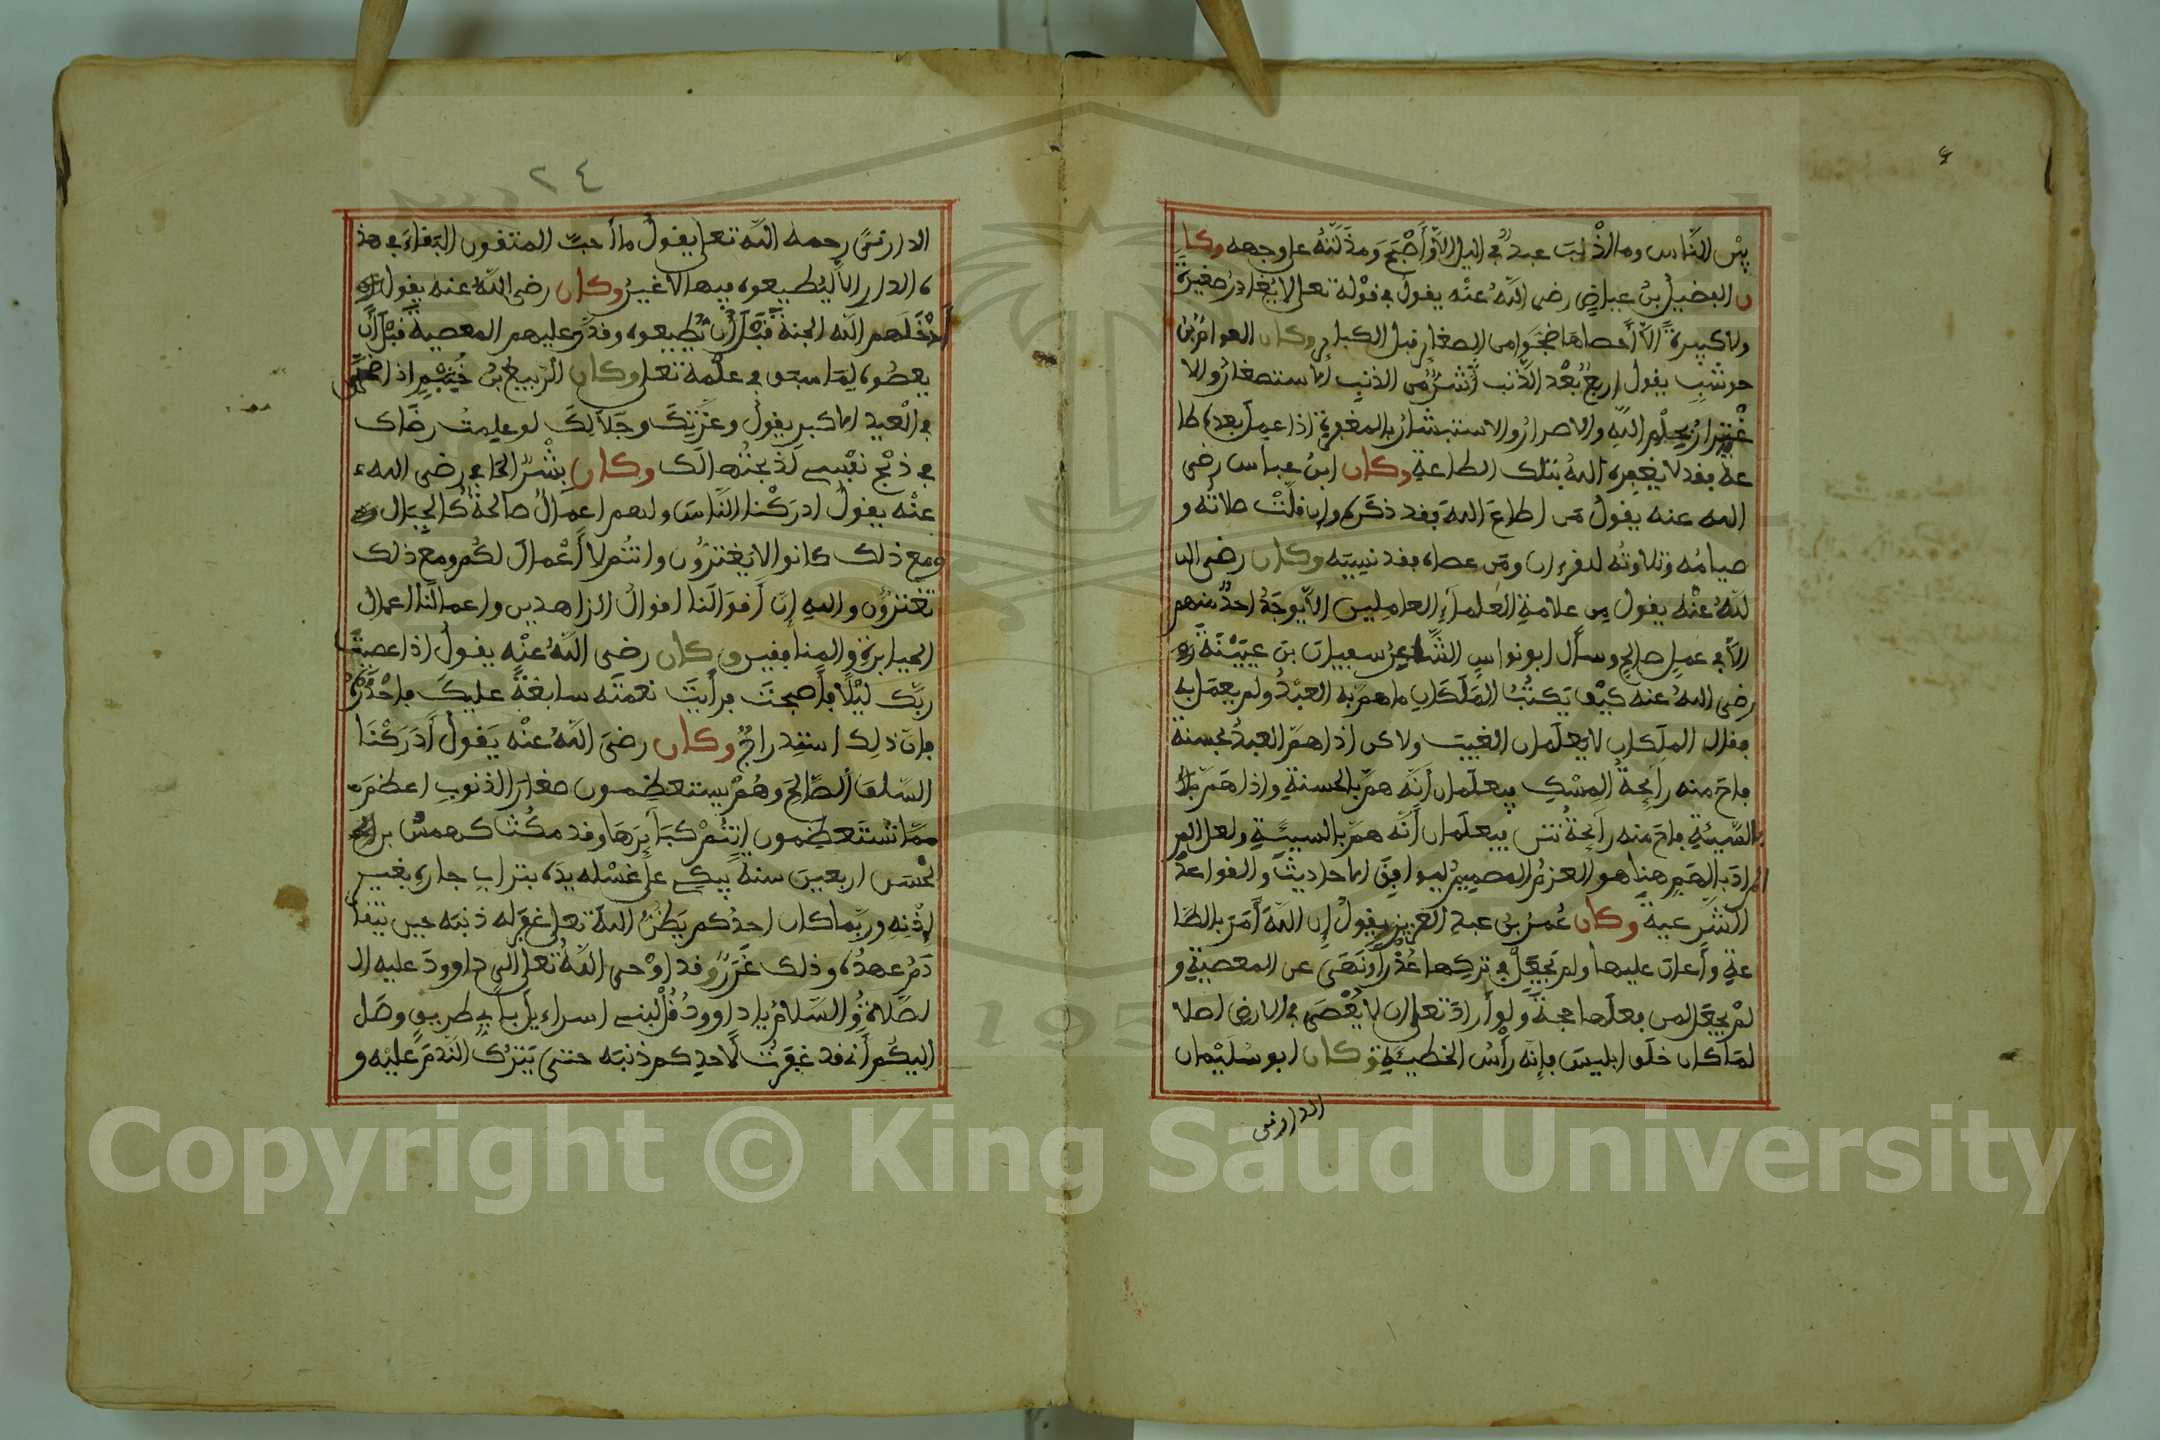 بين الناس وما اذنب عبد في اليل الا واصبح ومذلته على وجهه وكا
ن الفضيل بن عياض رضي الله عنه يقول في قوله تعالى لا يغادر صغيرة
ولا كبيرة الا احصاها ضجوا من الصغاير قبل الكباير وكان العوام بن
حوشب يقول اربع بعد الذنب اشر من الذنب الاستصغار والا
غترار بحلم الله والاصرار والاستبشار بالمغفرة اذا عمل بعده طا
عة فقد لا يغفره الله بتلك الطاعة وكان ابن عباس رضي
الله عنه يقول من اطاع الله فقد ذكره وان قلت صلاته و
صيامه وتلاوته للقرءان ومن عصاه فقد نسيه وكان رضي ال
لله عنه يقول من علامة العلماء العاملين الا يوجد احد منهم
الا في عمل صالح وسأل ابو نواس الشاعر سفيان بن عيينة
رضي الله عنه كيف يكتب الملكان ما هم به العبد ولم يعمل به
فقال الملكان لا يعلمان الغيب ولاكن اذا هم العبد بحسنة
فاح منه رائحة المسك فيعلمان انه هم بالحسنة واذا هم
بالسيئة فاح منه رائحة نتن فيعلمان انه هم بالسيئة ولعل المر
اد بالهم هنا هو العزم المصمم ليوافق الاحاديث والقواعد
الشرعية وكان عمر بن عبد العزيز يقول ان الله امر بالطا
عة واعان عليها ولم يجعل في تركها عذرا ونهى عن المعصية و
لم يجعل لمن فعلها حجة ولو اراد تعالى ان لا يعصى في الارض اصلا
لما كان خلق ابليس فإنه رأس الخطيئة وكان ابو سليمان
الدارنى
٢٤
الدارنى رحمه الله تعلى يقول ما احب المتقون البقاء في هذ
ه الدار الا ليطيعوه فيها لا غير وكان رضي الله عنه يقول
ادخلهم الله الجنة قبل ان يطيعوه وقدر عليهم المعصية قبل ان
يعصوه لما سبق في علمه تعلى وكان الربيع بن خيثم اذا ضحى
في العيد الاكبر يقول وعزتك وجلالك لو علمت رضاك
في ذبح نفسي لذبحتها لك وكان بشر الحافي رضي الله
عنه يقول ادركنا الناس ولهم اعمال صالحة كالجبال
ومع ذلك كانوا لا يغترون وانتم لا اعمال لكم ومع ذلك
تغترون والله ان اقوالنا اقوال الزاهدين واعمالنا اعمال
الجبابرة والمنافقين وكان رضي الله عنه يقول اذا عصيت
ربك ليلا فاصبحت فرأيت نعمته سابغة عليك فاحذره
فان ذلك استدراج وكان رضي الله عنه يقول ادركنا
السلف الصالح وهم يستعظمون صغار الذنوب اعظم
مما تستعظمون انتم كبائرها وقد مكث كهمس بن
الحسن اربعين سنة يبكي على غسله يده بتراب جاره بغير
اذنه وربما كان احدكم يظن الله تعلى غفر له ذنبه حين تقا
دم عهده وذلك غرر وقد اوحى الله تعلى الى داوود عليه ال
صلاة والسلام يا داوود قل لبني اسراءيل باي طريق وصل
اليكم اني قد غفرت لاحدكم ذنبه حتى يترك الندم عليه و